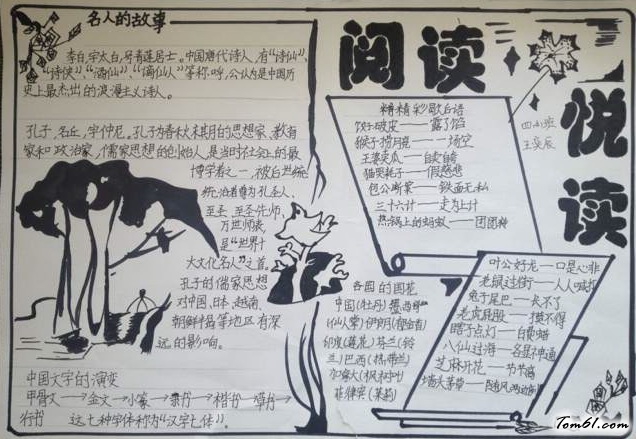 名人的故事
李白,字太白,号青莲居士。中国唐代诗人,有"诗仙"、
"诗侠"、"酒仙"、"谪仙人"等称呼,公认为是中国历
史上最杰出的浪漫主义诗人。
孔子,名丘,字仲尼。孔子为春秋末期的思想家、教育
家和政治家,儒家思想的创始人,是当时社会上的最
博学者之一,被后世统
统治者尊为孔圣人、
至圣、至圣先师、
万世师表,
是"世界十
大文化名人"之首。
孔子的儒家思想
对中国、日本、越南、
朝鲜半岛等地区有深
远的影响。
中国文字的演变
甲骨文→金文→小篆→隶书→楷书→草书→
行书 这七种字体称为"汉字七体"。
阅读
悦
读
四小班
精精彩歇后语
饺子破皮——露了馅
猴子捞月亮——一场空
王婆卖瓜——自卖自夸
猫哭耗子——假慈悲
包公断案——铁面无私
三十六计——走为上计
热锅上的蚂蚁——团团转
叶公好龙——口是心非
老鼠过街——人人喊打
兔子尾巴——长不了
老虎屁股——摸不得
瞎子点灯——白费蜡
八仙过海——各显神通
芝麻开花——节节高
墙头茅草——随风两边
各国的国花
中国(牡丹)墨西哥
(仙人掌)伊朗(郁金香)
印度(莲花)芬兰(铃
兰)巴西(
加拿大(枫树叶)
菲律宾(茉莉)
Tom61.com